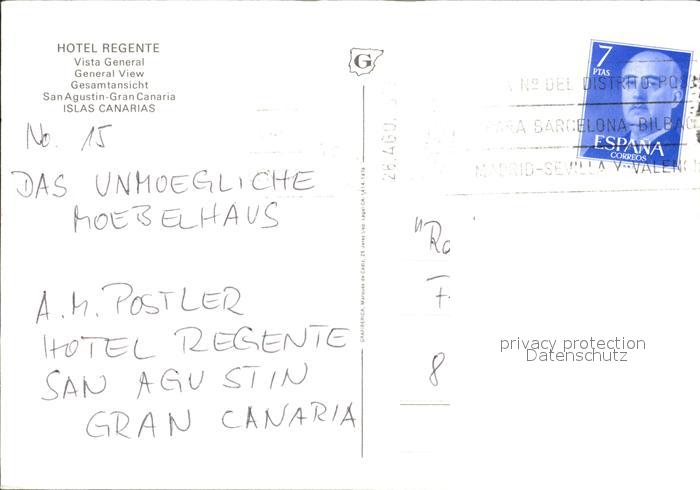 HOTEL REGENTE
Vista General
General View
Gesamtansicht
San Agustin-Gran Canaria
ISLAS CANARIAS
No. 15
DAS UNMOEGLICHE
MOEBELHAUS
A.M. POSTLER
HOTEL REGENTE
SAN AGUSTIN
GRAN CANARIA
G
7
PTAS
ESPAÑA
CORREOS
28.AGO.
Nº DEL DISTRITO POS
PARA BARCELONA-BILBAO
MADRID-SEVILLA Y VALENCI
"Ro
F.
8
privacy protection
Datenschutz